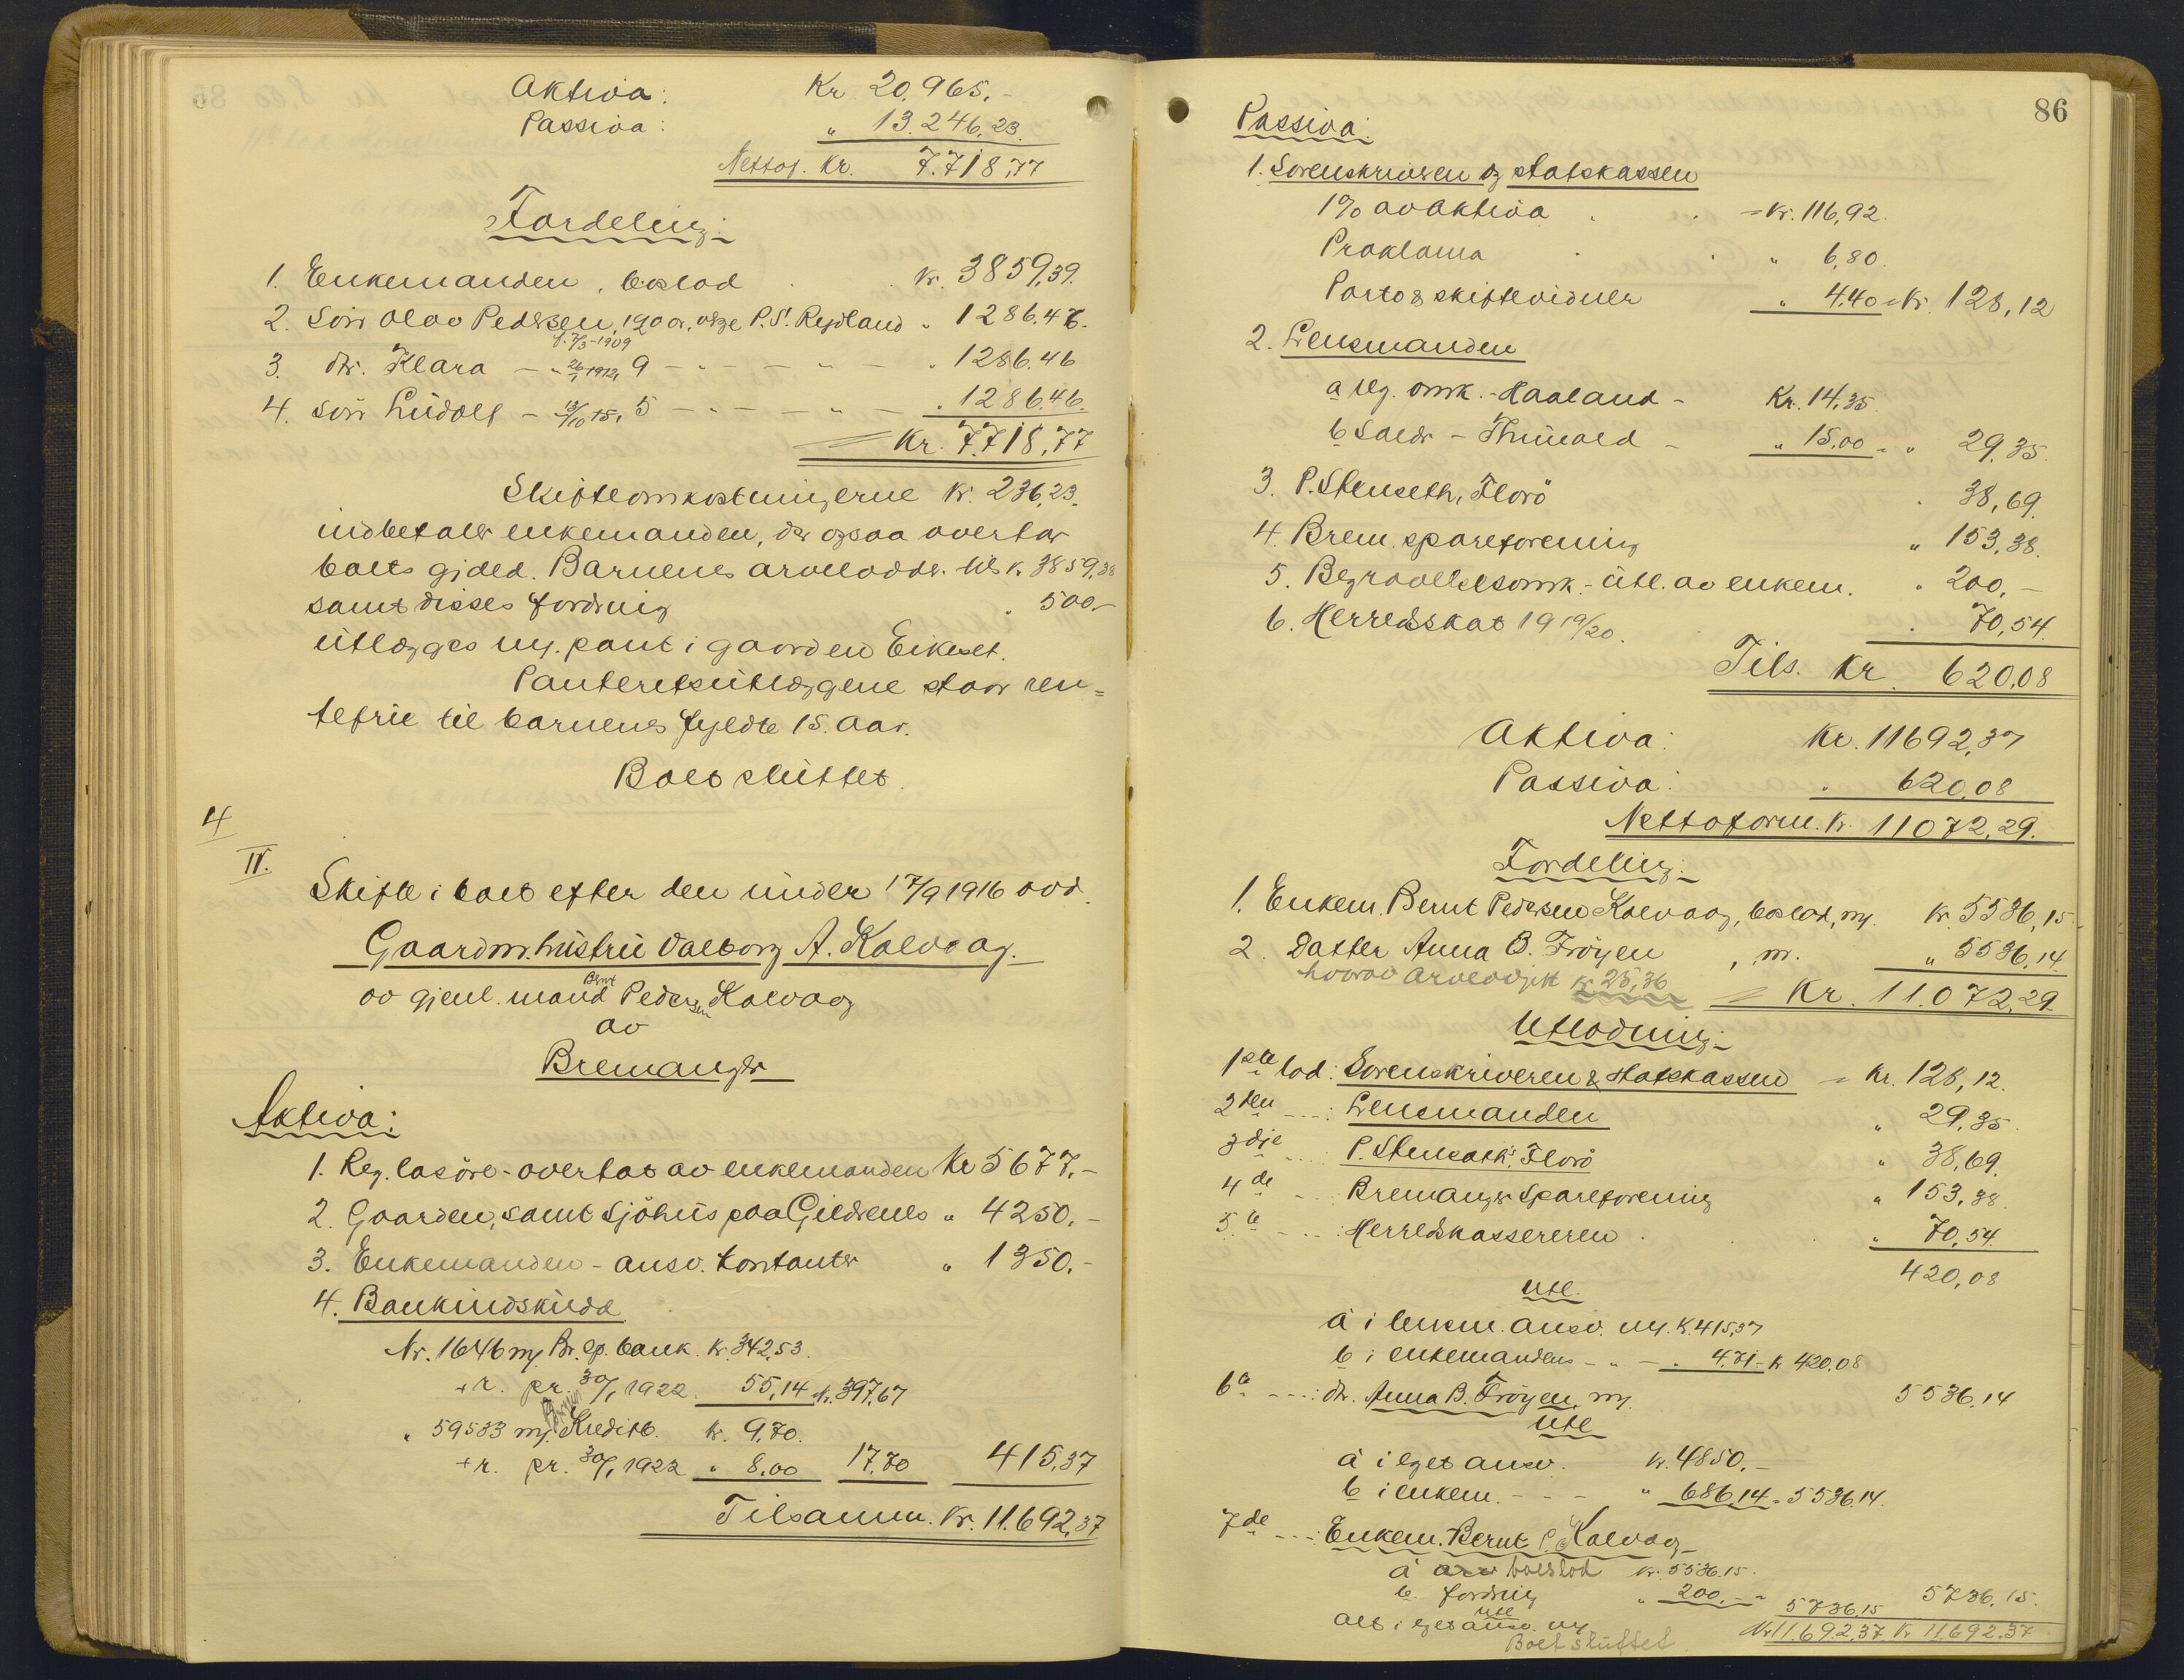 Aktiva: Kr. 20.965.-
Passiva: " 13.246,23.
Nettof. Kr. 7.718,77
Fordeling:
1. Enkemanden, boslod kr. 3859,39.
2. Søn Olav Pedersen, 190 or, vrge P. S. Rydland " 1286.46.
f. 2/3-1909
3. dtr. Klara - " 26/1 1912, 9 - " - - " - " 1286.46
4. søn Ludolf - 13/10 15, 5 - " - - " - " 1286.46.
= Kr. 7.718,77
Skifteomkostningerne kr. 236,23.
indbetaler enkemanden, der ogsaa overtar
boets gjeld. Barnenes arvelodder tils k. 3859,38
samt disses fordring " 500.-
utlægges m. pant i gaarden Eikeset.
Panteretsutlæggene staar ren=
tefrie til barnenes fyldte 15. aar.
Boet sluttet.
4
IV.
Skifte i boet efter den under 17/9 1916 avd.
Gaardm. hustru Valborg A. Kalvaag.
av gjenl. mand Bernt Pedersen Kalvaag
av
Bremanger
Aktiva:
1. Reg. løsøre - overtat av enkemanden Kr 5677.-
2. Gaarden, samt sjøhus paa Gjeldrenes " 4250.-
3. Enkemanden - ansv. kontanter " 1350.-
4. Bankindskudd
Nr. 1646 m. Br. sp. bank. kr. 342,53.
+ r. pr. 30/1 1922. 55,14 k. 397,67
" 59533 m. Bergens Kreditb. kr. 9,70.
+ r. pr. 30/1 1922 " 8,00 17,70 415,37
Tilsamm. Kr. 11.692,37
86
Passiva:
1. Sorenskriveren og statskassen
1% av aktiva = kr. 116,92.
Proklama " 6,80.
Porto & skiftevidner " 4.40 = kr. 128,12
2. Lensmanden
a reg. omk. - Haaland - Kr. 14,35.
b Saldr - Thunold - " 15,00 = " 29,35.
3. P. Stenseth, Florø " 38,69.
4. Brem. spareforening " 153,38.
5. Begravelsesomk. - utl. av enkem. " 200,-
6. Herredsskat 19 19/20. " 70,54.
Tils. Kr. 620,08
Aktiva: Kr. 11692,37
Passiva: " 620,08
Nettoform. kr. 11072,29.
Fordeling:
1. Enkem. Bernt Pedersen Kalvaag, boslod, m. kr. 5536,15.
2. Datter Anna B. Frøyen, m. " 5536,14.
hvorav arveavgift kr 25,36
= Kr. 11.072,29.
Utlodning:
1ste lod: Sorenskriveren & statskassen = Kr. 128,12.
2den - - : Lensmanden " 29,35.
3dje - - P. Stenseth, Florø " 38,69.
4de - - Bremanger Spareforening " 153,38.
5te - - : Herredskassereren " 70,54.
420,08
Utl.
a i lensm. ansv. m. k. 415,37
b i enkemandens - " - " 4,71 = k 420,08
6te - - : dtr. Anna B. Frøyen, m. 5536,14
Utl.
a i eget ansv. kr. 4850.-
b i enkem. - - - " 686,14 = 5536,14.
7de - - : Enkem. Bernt P. Kalvaag
a boeslod kr. 5536.15.
b. fordring " 200.- = 5736,15 5736,15.
utl.
alt i eget ansv. m.
Kr 11.692,37 Kr 11.692.37.
Boet sluttet.